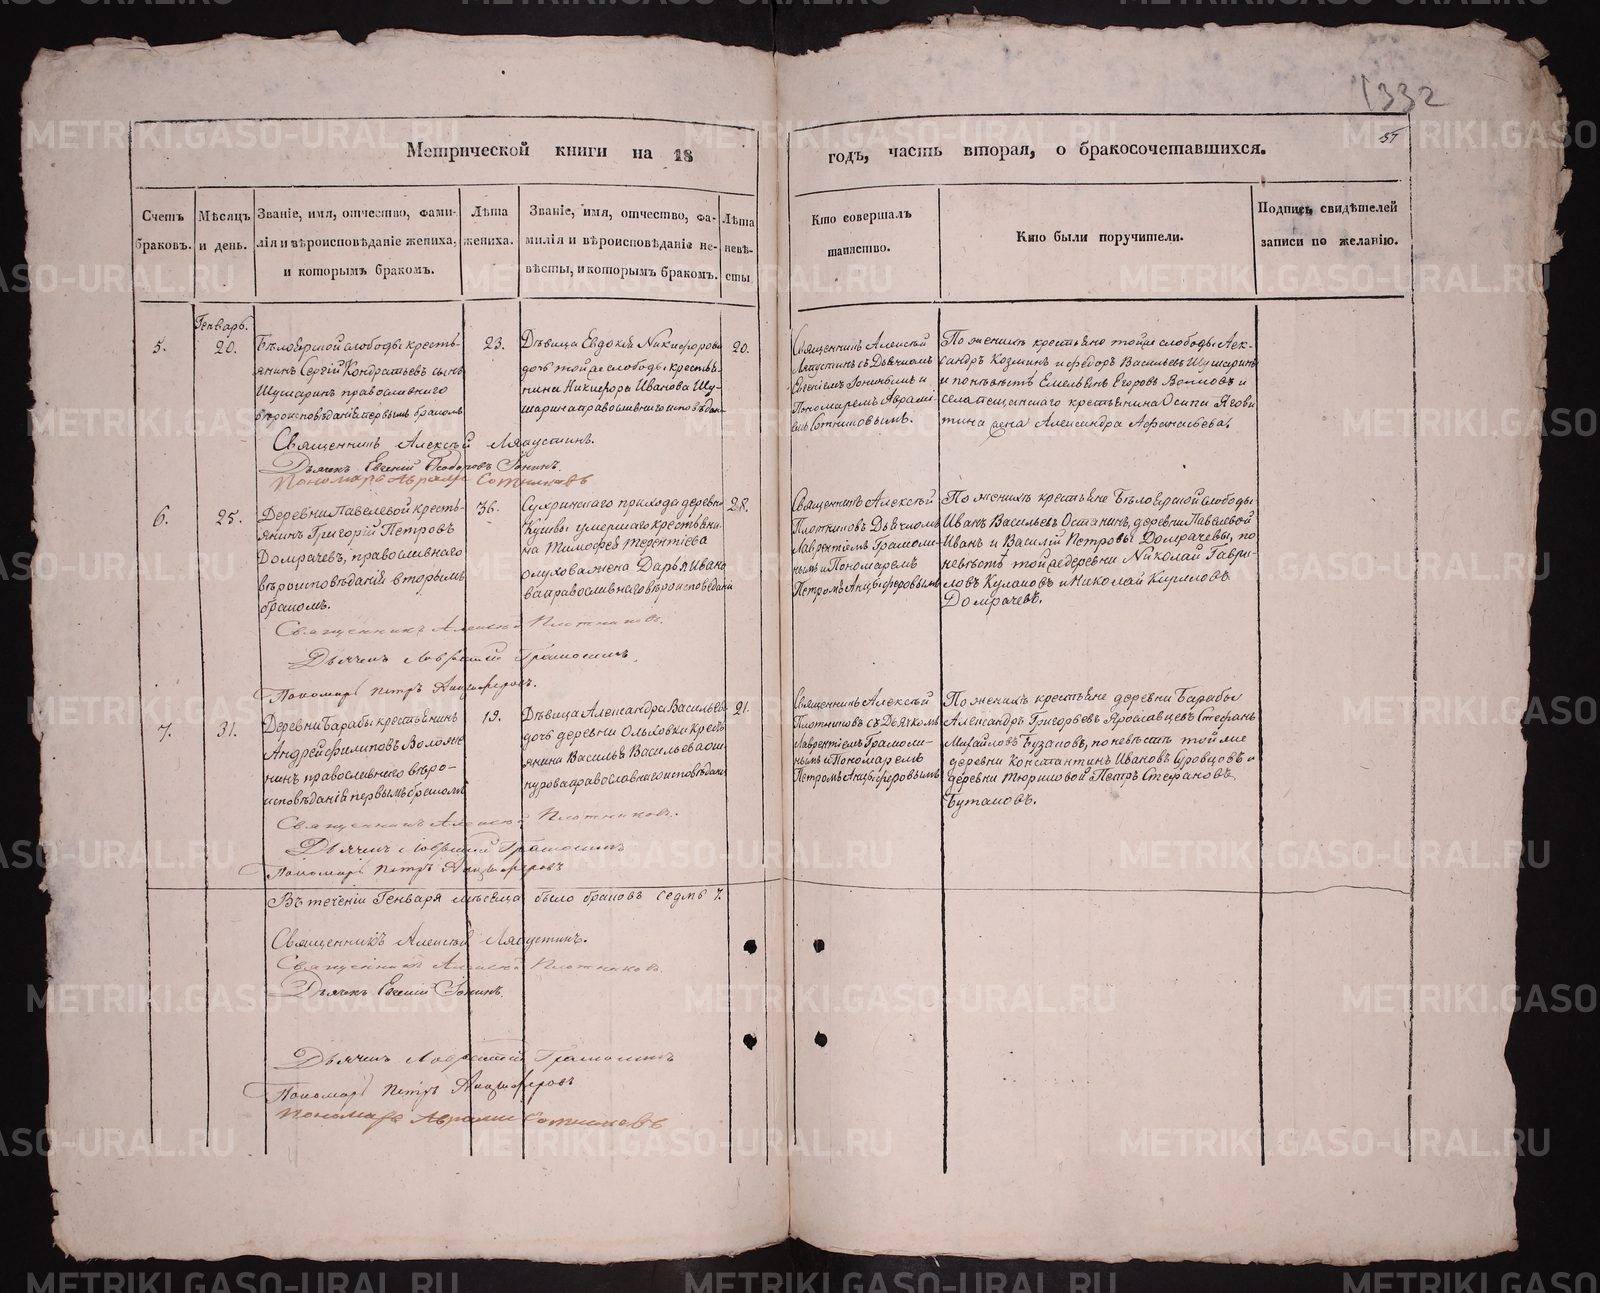 1332
57
Метрической книги на 18
годъ, часть вторая, о бракосочетавшихся.
Счетъ браковъ.
Мѣсяцъ и день.
Званіе, имя, отчество, фами-
лія и вѣроисповѣданіе жениха,
и которымъ бракомъ.
Лѣта
жениха.
Званіе, имя, отчество, фа-
милія и вѣроисповѣданіе не-
вѣсты, и которымъ бракомъ.
Лѣта
невѣ-
сты
Кто совершалъ
таинство.
Кто были поручители.
Подпись свидѣтелей
записи по желанію.
Генварь.
5.
20.
Бѣлоярской слободы кресть-
янинъ Сергій Кондратьевъ сынъ
Шушаринъ православнаго
вѣроисповѣданія первымъ бракомъ
23.
Дѣвица Евдокія Никифорова
дочь той же слободы крестья-
нина Никифора Иванова Шу-
шарина православнаго исповѣдан
20.
Священникъ Алексѣй
Ляпустинъ съ Дьячкомъ
Евгеніемъ Іонинымъ и
Пономаремъ Аврамі-
емъ Сотниковымъ.
По женихѣ крестьяне той же слободы Алек-
сандръ Козминъ и Федоръ Васильевъ Шушарины
и по невѣстѣ Емельянъ Егоровъ Волковъ и
села крестьянина Осипа Ягови
тина жена Александра Афанасьева.
Священникъ Алексѣй Ляпустинъ.
Дьячекъ Евгеній Ѳеодоровъ Іонинъ.
Пономарь Аврамій Сотниковъ
6.
25.
Деревни Павелевой кресть-
янинъ Григорій Петровъ
Домрачевъ, православнаго
вѣроисповѣданія вторымъ
бракомъ.
36.
Сухринскаго прихода деревни
умершаго крестьяни-
на Тимофея Терентіева
жена Дарья Ивано
ва православнаго вѣроисповѣдани
28.
Священникъ Алексѣй
Плотниковъ Дьячкомъ
Лаврентіемъ Грамоли-
нымъ и Пономаремъ
Петромъ Анциферовымъ
По женихѣ крестьяне Бѣлоярской слободы
Иванъ Васильевъ Останинъ, деревни Павелевой
Иванъ и Василій Петровы Домрачевы, по
невѣстѣ той же деревни Николай Гаври-
ловъ Кулаковъ и Николай Кириловъ
Домрачевъ.
Священникъ Алексѣй Плотниковъ.
Дьячекъ Лаврентій Грамолинъ.
Пономарь Петръ Анциферовъ.
7.
31.
Деревни Барабы крестьянинъ
Андрей Филиповъ Воложе
нинъ православнаго вѣро-
исповѣданія первымъ бракомъ
19.
Дѣвица Александра Васильева
дочь деревни Ольховки кресть
янина Василья Васильева
православнаго исповѣдан
21.
Священникъ Алексѣй
Плотниковъ съ Дьячкомъ
Лаврентіемъ Грамоли-
нымъ и Пономаремъ
Петромъ Анциферовымъ
По женихѣ крестьяне деревни Барабы
Александръ Григорьевъ Ярославцевъ Стефанъ
Михайловъ Бузановъ, по невѣстѣ той же
деревни Константинъ Ивановъ Суровцовъ и
деревни Тюриковой Петръ Стефановъ
Бутаковъ.
Священникъ Алексѣй Плотниковъ.
Дьячекъ Лаврентій Грамолинъ
Пономарь Петръ Анциферовъ
Въ теченіи Генваря мѣсяца было браковъ седмь 7.
Священникъ Алексѣй Ляпустинъ.
Священникъ Алексѣй Плотниковъ.
Дьячекъ Евгеній Іонинъ.
Дьячекъ Лаврентій Грамолинъ
Пономарь Петръ Анциферовъ
Пономарь Аврамій Сотниковъ
METRIKI.GASO-URAL.RU